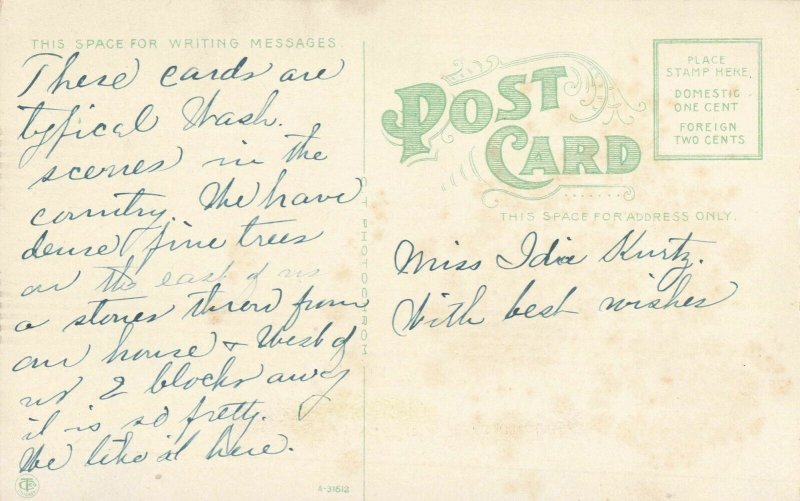 THIS SPACE FOR WRITING MESSAGES.
These cards are
typical Wash.
scenes in the
country. We have
dense pine trees
on the east of us
a stones throw from
our house & West of
us 2 blocks away
it is so pretty.
We like it here.
C T PHOTOCHROM
A-31612
POST CARD
PLACE
STAMP HERE.
DOMESTIC
ONE CENT
FOREIGN
TWO CENTS
THIS SPACE FOR ADDRESS ONLY.
Miss Ida Kurtz.
With best wishes